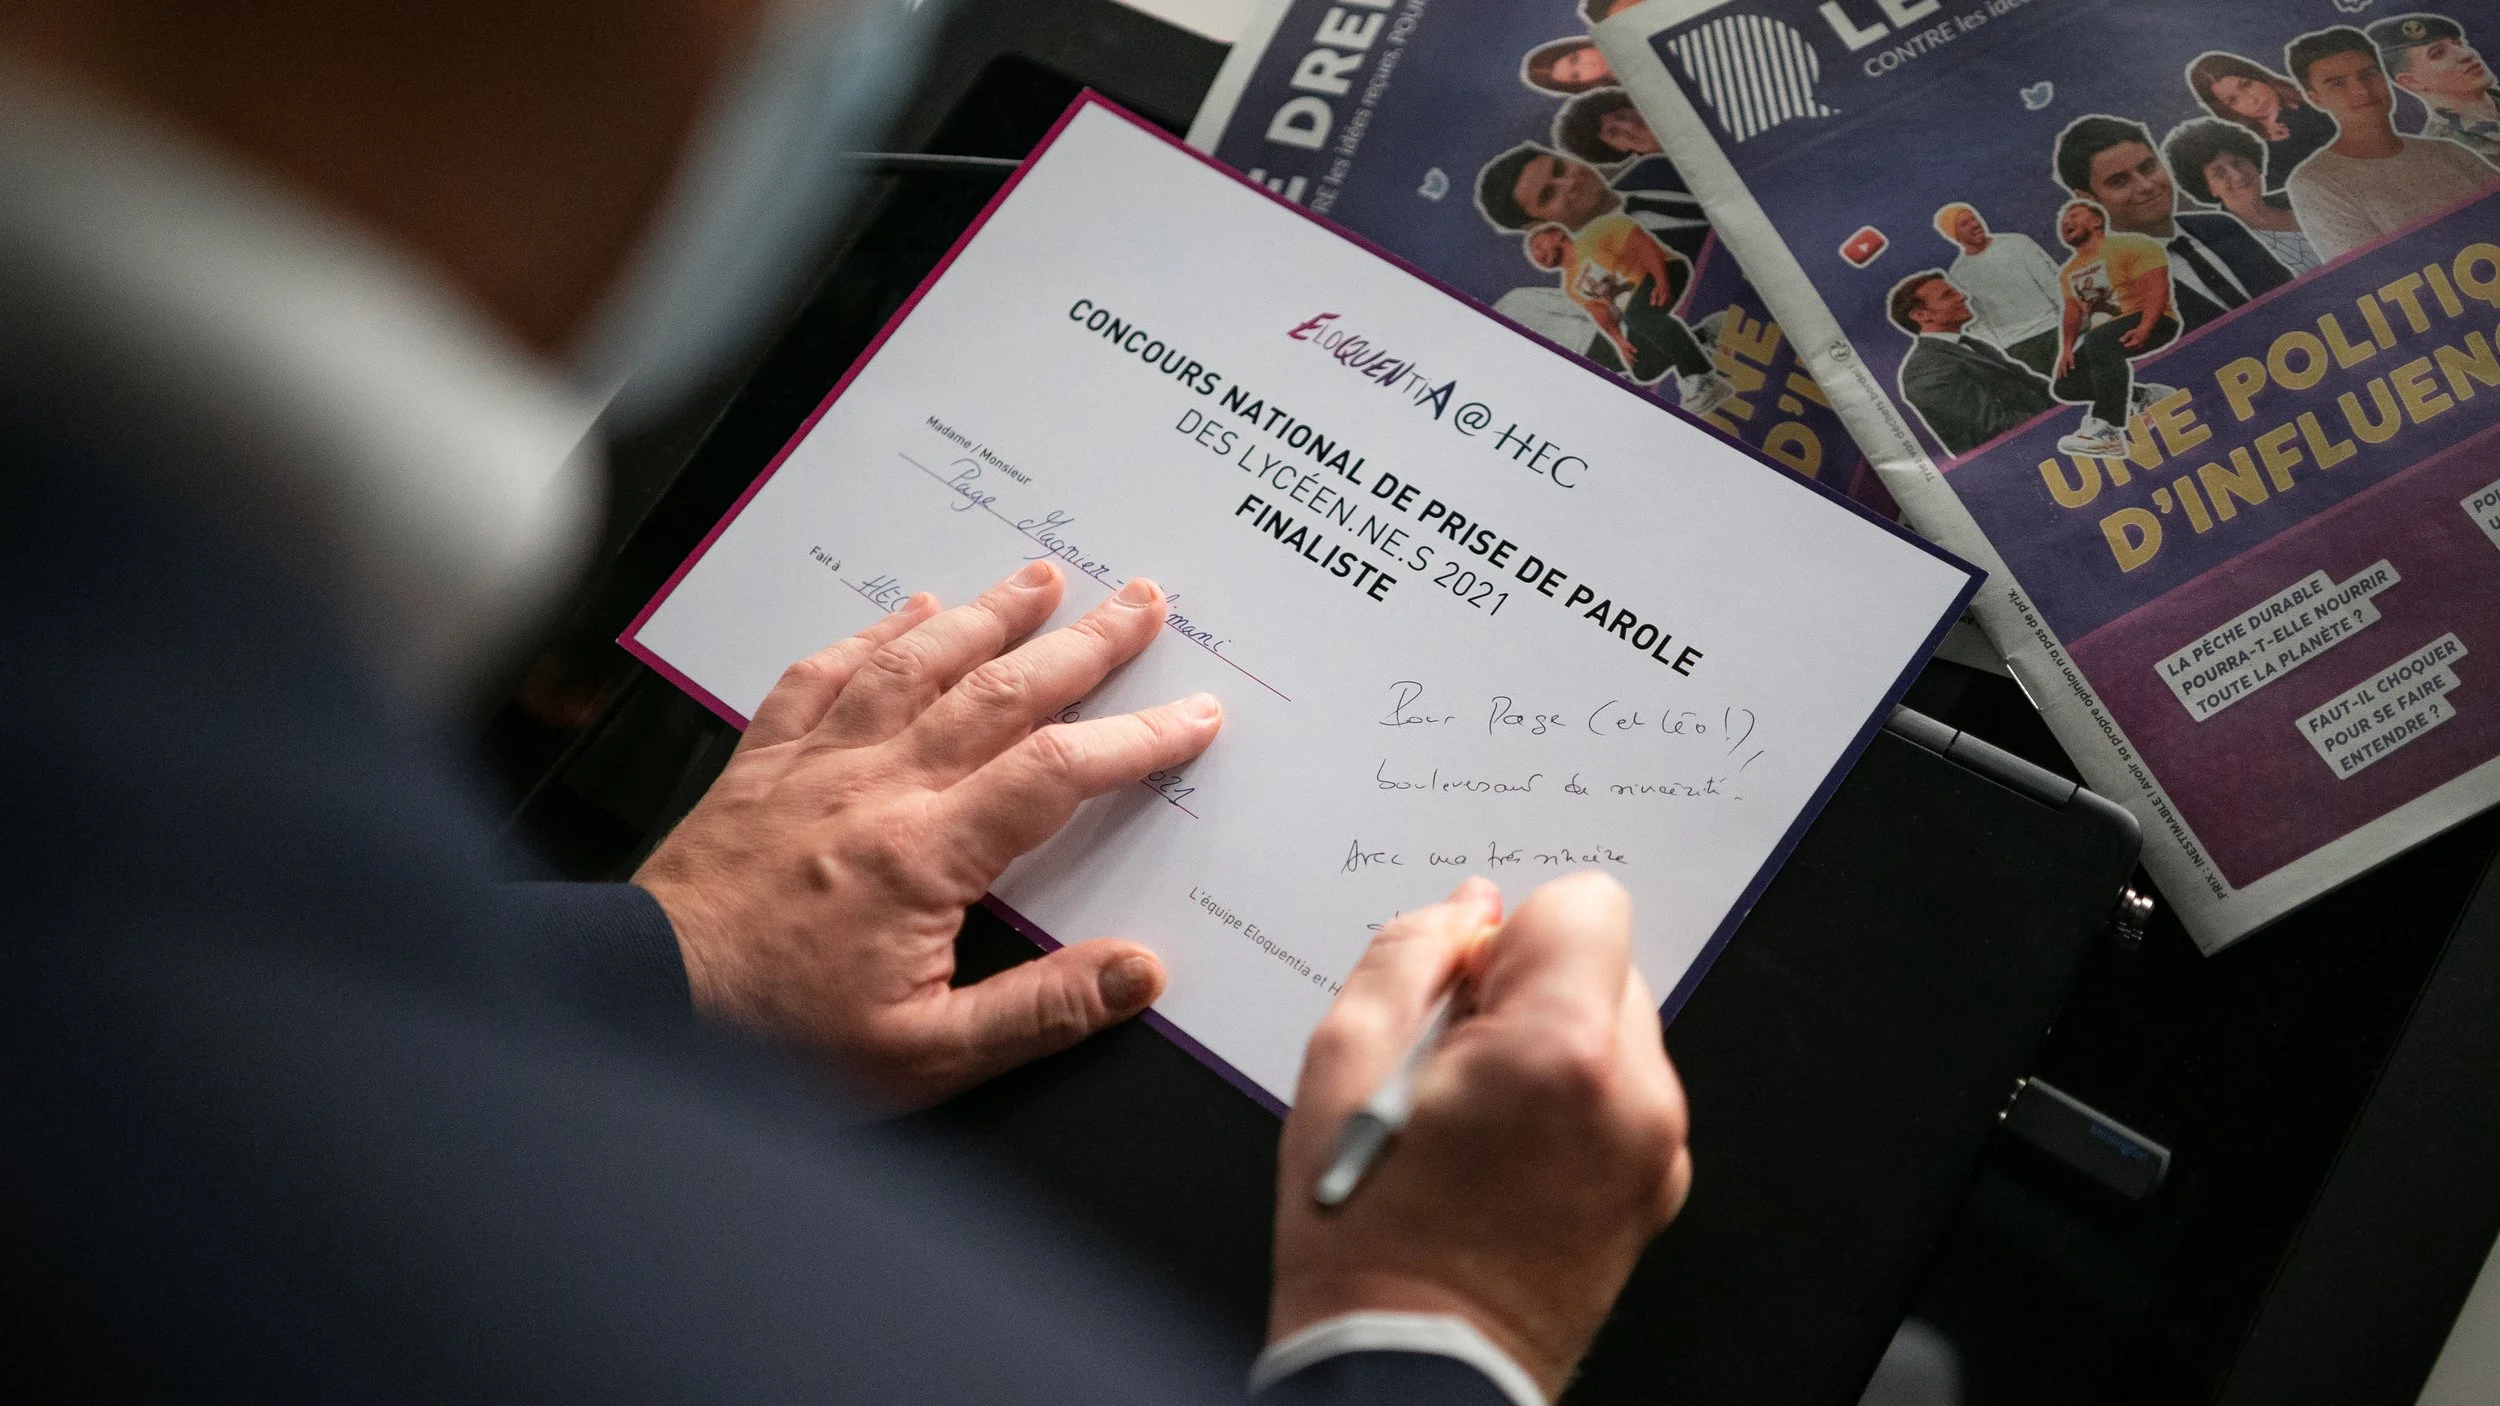 ELOQUENTiA @ HEC
CONCOURS NATIONAL DE PRISE DE PAROLE
DES LYCÉEN.NE.S 2021
FINALISTE
Madame / Monsieur
Page Magnier-
imani
Fait à HEC
10
021
Pour Page (et Léo !),
bouleversant de sincérité.
Avec ma très sincère
L'équipe Eloquentia et H
E DREN
RE les idées reçues. POUR
UNE
D'
LE
CONTRE les idé
UNE POLITIQ
D'INFLUEN
LA PÊCHE DURABLE
POURRA-T-ELLE NOURRIR
TOUTE LA PLANÈTE ?
FAUT-IL CHOQUER
POUR SE FAIRE
ENTENDRE ?
PO
U
PRIX : INESTIMABLE | Avoir sa propre opinion n'a pas de prix.